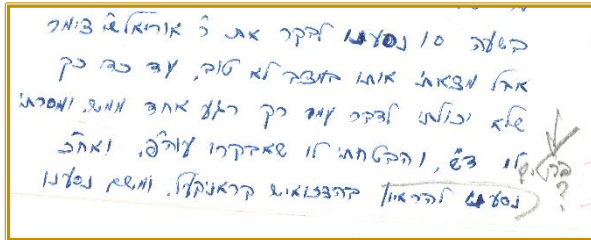 בשעה 10 נסענו לבקר את ר' אוריאל צימר
אבל מצאתי אותו במצב לא טוב, עד כדי כך
שלא יכולתי לדבר עמו רק רגע אחד ממש, ומסרתי
לו ד"ש, והבטחתי לו שאבקרו עוה"פ. ואח"כ
נסענו להראיון בהדזואיש קראניקעל. ומשם נסענו